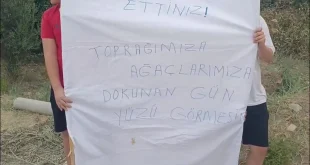 ETTİNİZ!
TOPRAĞIMIZA
AĞAÇLARIMIZA
DOKUNAN GÜN
YÜZÜ GÖRMESİN